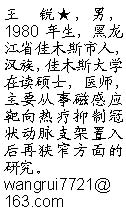 王　锐★，男，
1980 年生，黑龙
江省佳木斯市人，
汉族，佳木斯大学
在读硕士，医师，
主要从事磁感应
靶向热疗抑制冠
状动脉支架置入
后再狭窄方面的
研究。
wangrui7721@
163.com